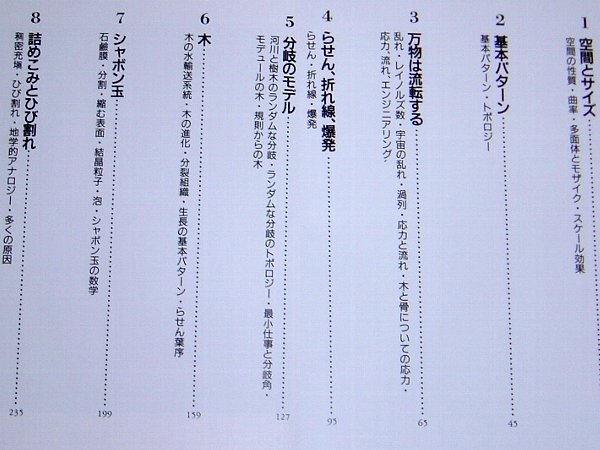 1 空間とサイズ
空間の性質・曲率・多面体とモザイク・スケール効果
2 基本パターン 45
基本パターン・トポロジー
3 万物は流転する 65
乱れ・レイノルズ数・宇宙の乱れ・渦列・応力と流れ・木と骨についての応力・
応力、流れ、エンジニアリング
4 らせん、折れ線、爆発 95
らせん・折れ線・爆発
5 分岐のモデル 127
河川と樹木のランダムな分岐・ランダムな分岐のトポロジー・最小仕事と分岐角・
モデュールの木・規則からの木
6 木 159
木の水輸送系統・木の進化・分裂組織・生長の基本パターン・らせん葉序
7 シャボン玉 199
石鹸膜・分割・縮む表面・結晶粒子・泡・シャボン玉の数学
8 詰めこみとひび割れ 235
稠密充塡・ひび割れ・地学的アナロジー・多くの原因